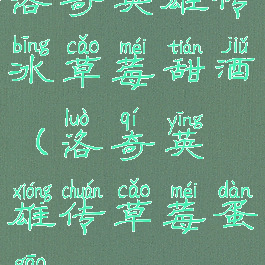 洛奇英雄传
bīng cǎo méi tián jiǔ
冰草莓甜酒
luò qí yīng
(洛奇英
xióng chuán cǎo méi dàn
雄传草莓蛋
gāo